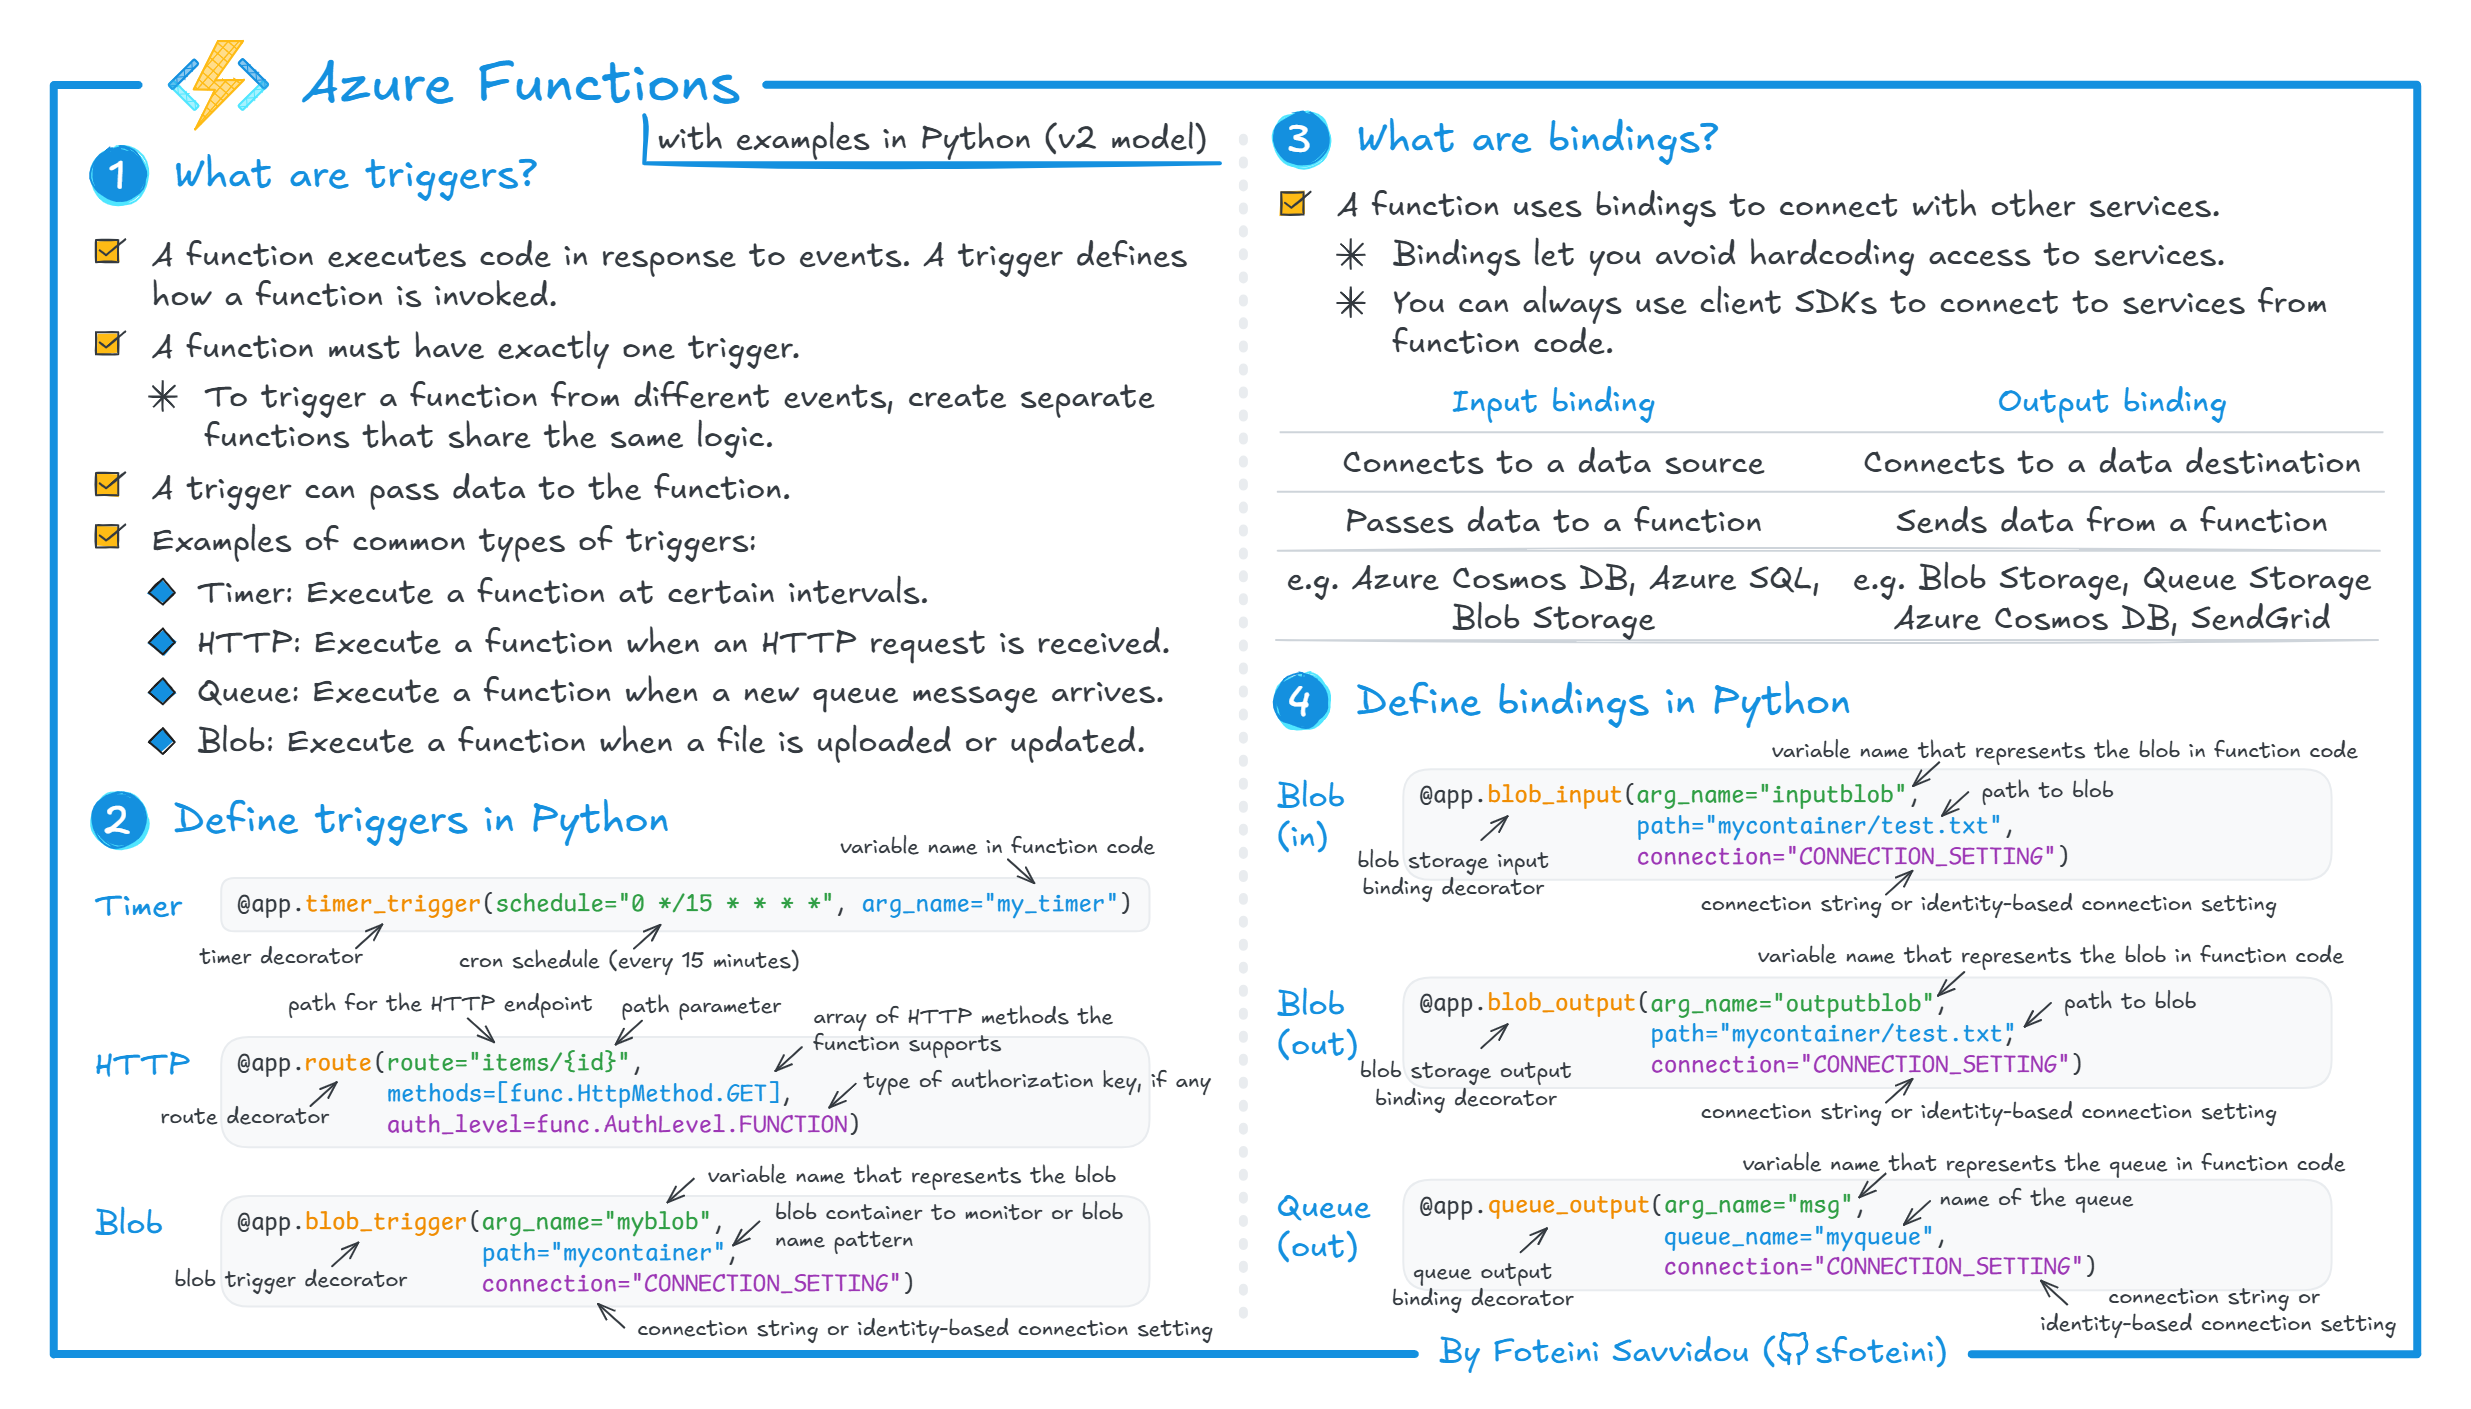 Azure Functions
with examples in Python (v2 model)
1 What are triggers?
A function executes code in response to events. A trigger defines
how a function is invoked.
A function must have exactly one trigger.
To trigger a function from different events, create separate
functions that share the same logic.
A trigger can pass data to the function.
Examples of common types of triggers:
Timer: Execute a function at certain intervals.
HTTP: Execute a function when an HTTP request is received.
Queue: Execute a function when a new queue message arrives.
Blob: Execute a function when a file is uploaded or updated.
2 Define triggers in Python
variable name in function code
Timer
@app.timer_trigger(schedule="0 */15 * * * *", arg_name="my_timer")
timer decorator
cron schedule (every 15 minutes)
path for the HTTP endpoint
path parameter
array of HTTP methods the
function supports
HTTP
@app.route(route="items/{id}",
methods=[func.HttpMethod.GET],
type of authorization key, if any
route decorator
auth_level=func.AuthLevel.FUNCTION)
variable name that represents the blob
Blob
@app.blob_trigger(arg_name="myblob",
blob container to monitor or blob
name pattern
path="mycontainer",
blob trigger decorator
connection="CONNECTION_SETTING")
connection string or identity-based connection setting
3 What are bindings?
A function uses bindings to connect with other services.
Bindings let you avoid hardcoding access to services.
You can always use client SDKs to connect to services from
function code.
Input binding Output binding
Connects to a data source Connects to a data destination
Passes data to a function Sends data from a function
e.g. Azure Cosmos DB, Azure SQL, e.g. Blob Storage, Queue Storage
Blob Storage Azure Cosmos DB, SendGrid
4 Define bindings in Python
variable name that represents the blob in function code
Blob
(in)
@app.blob_input(arg_name="inputblob",
path to blob
path="mycontainer/test.txt",
connection="CONNECTION_SETTING")
blob storage input
binding decorator
connection string or identity-based connection setting
variable name that represents the blob in function code
Blob
(out)
@app.blob_output(arg_name="outputblob",
path to blob
path="mycontainer/test.txt",
connection="CONNECTION_SETTING")
blob storage output
binding decorator
connection string or identity-based connection setting
variable name that represents the queue in function code
Queue
(out)
@app.queue_output(arg_name="msg",
name of the queue
queue_name="myqueue",
connection="CONNECTION_SETTING")
queue output
binding decorator
connection string or
identity-based connection setting
By Foteini Savvidou (sfoteini)